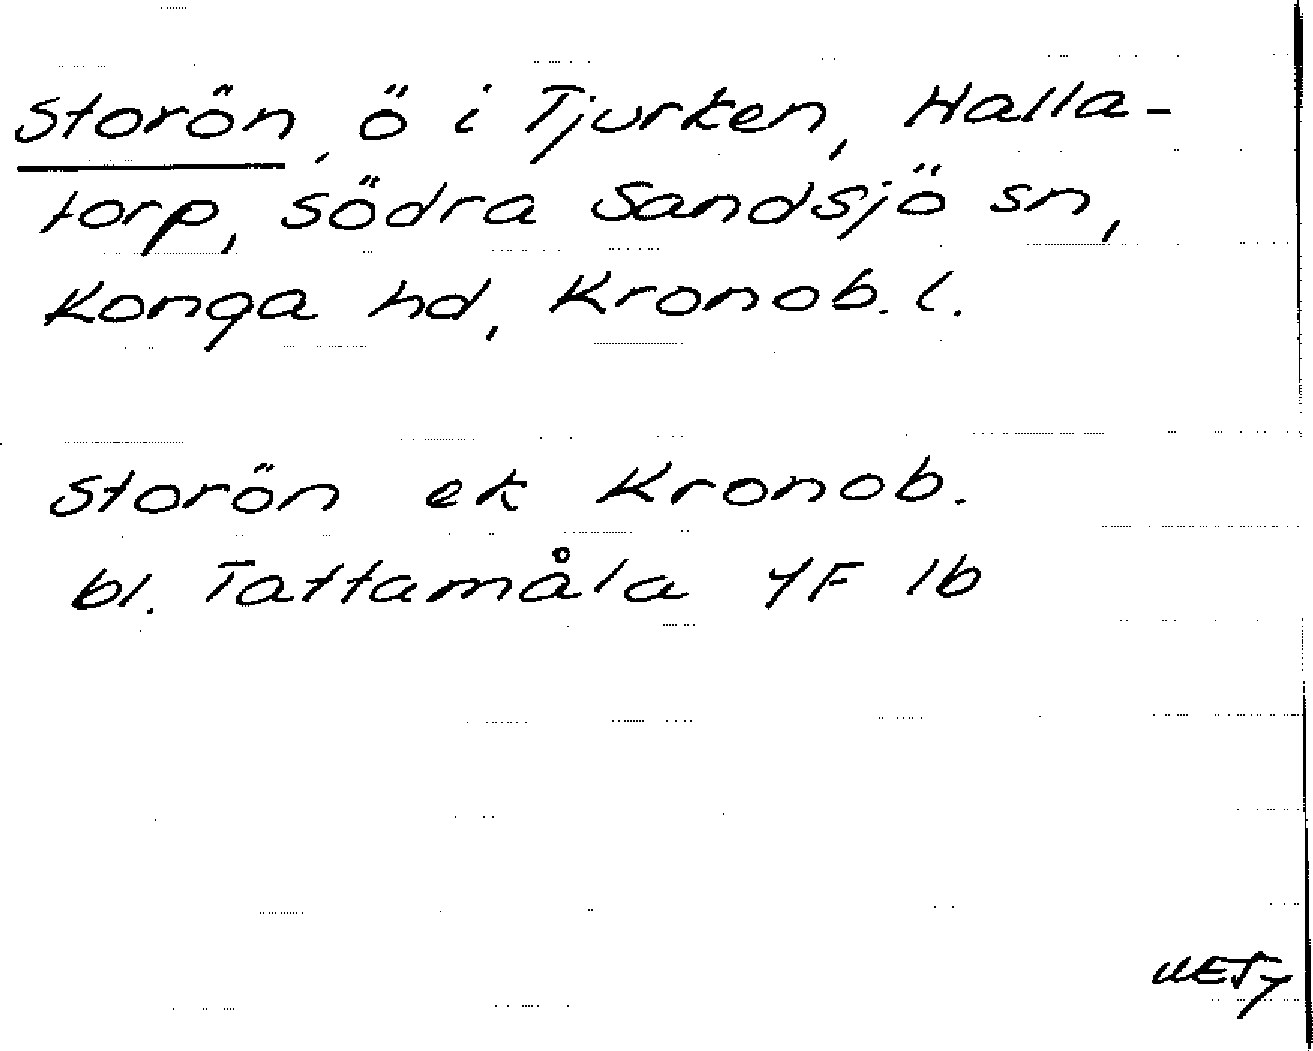 Storön, ö i Tjurken, Halla-
torp, södra Sandsjö sn,
Konga hd, Kronob. l.
Storön ek Kronob.
bl. Tattamåla 4F 1b